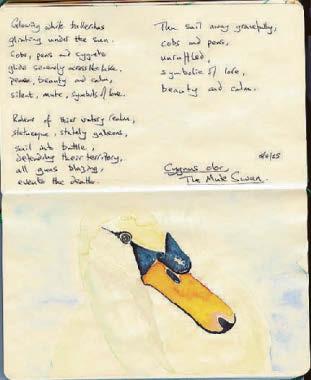 Glowing white turkeshas
glinting under the sun.
Cobs, pens and cygnets
glide serenely across the lake.
peace, beauty and calm,
silent, mute, symbols of love.
Rulers of their watery realm,
statuesque, stately galleons,
sail into battle,
defending their territory,
all guns blazing,
even to the death.
Then sail away gracefully,
cobs and pens,
unruffled,
symbolic of love,
beauty and calm.
Cygnus olor
The Mute Swan.